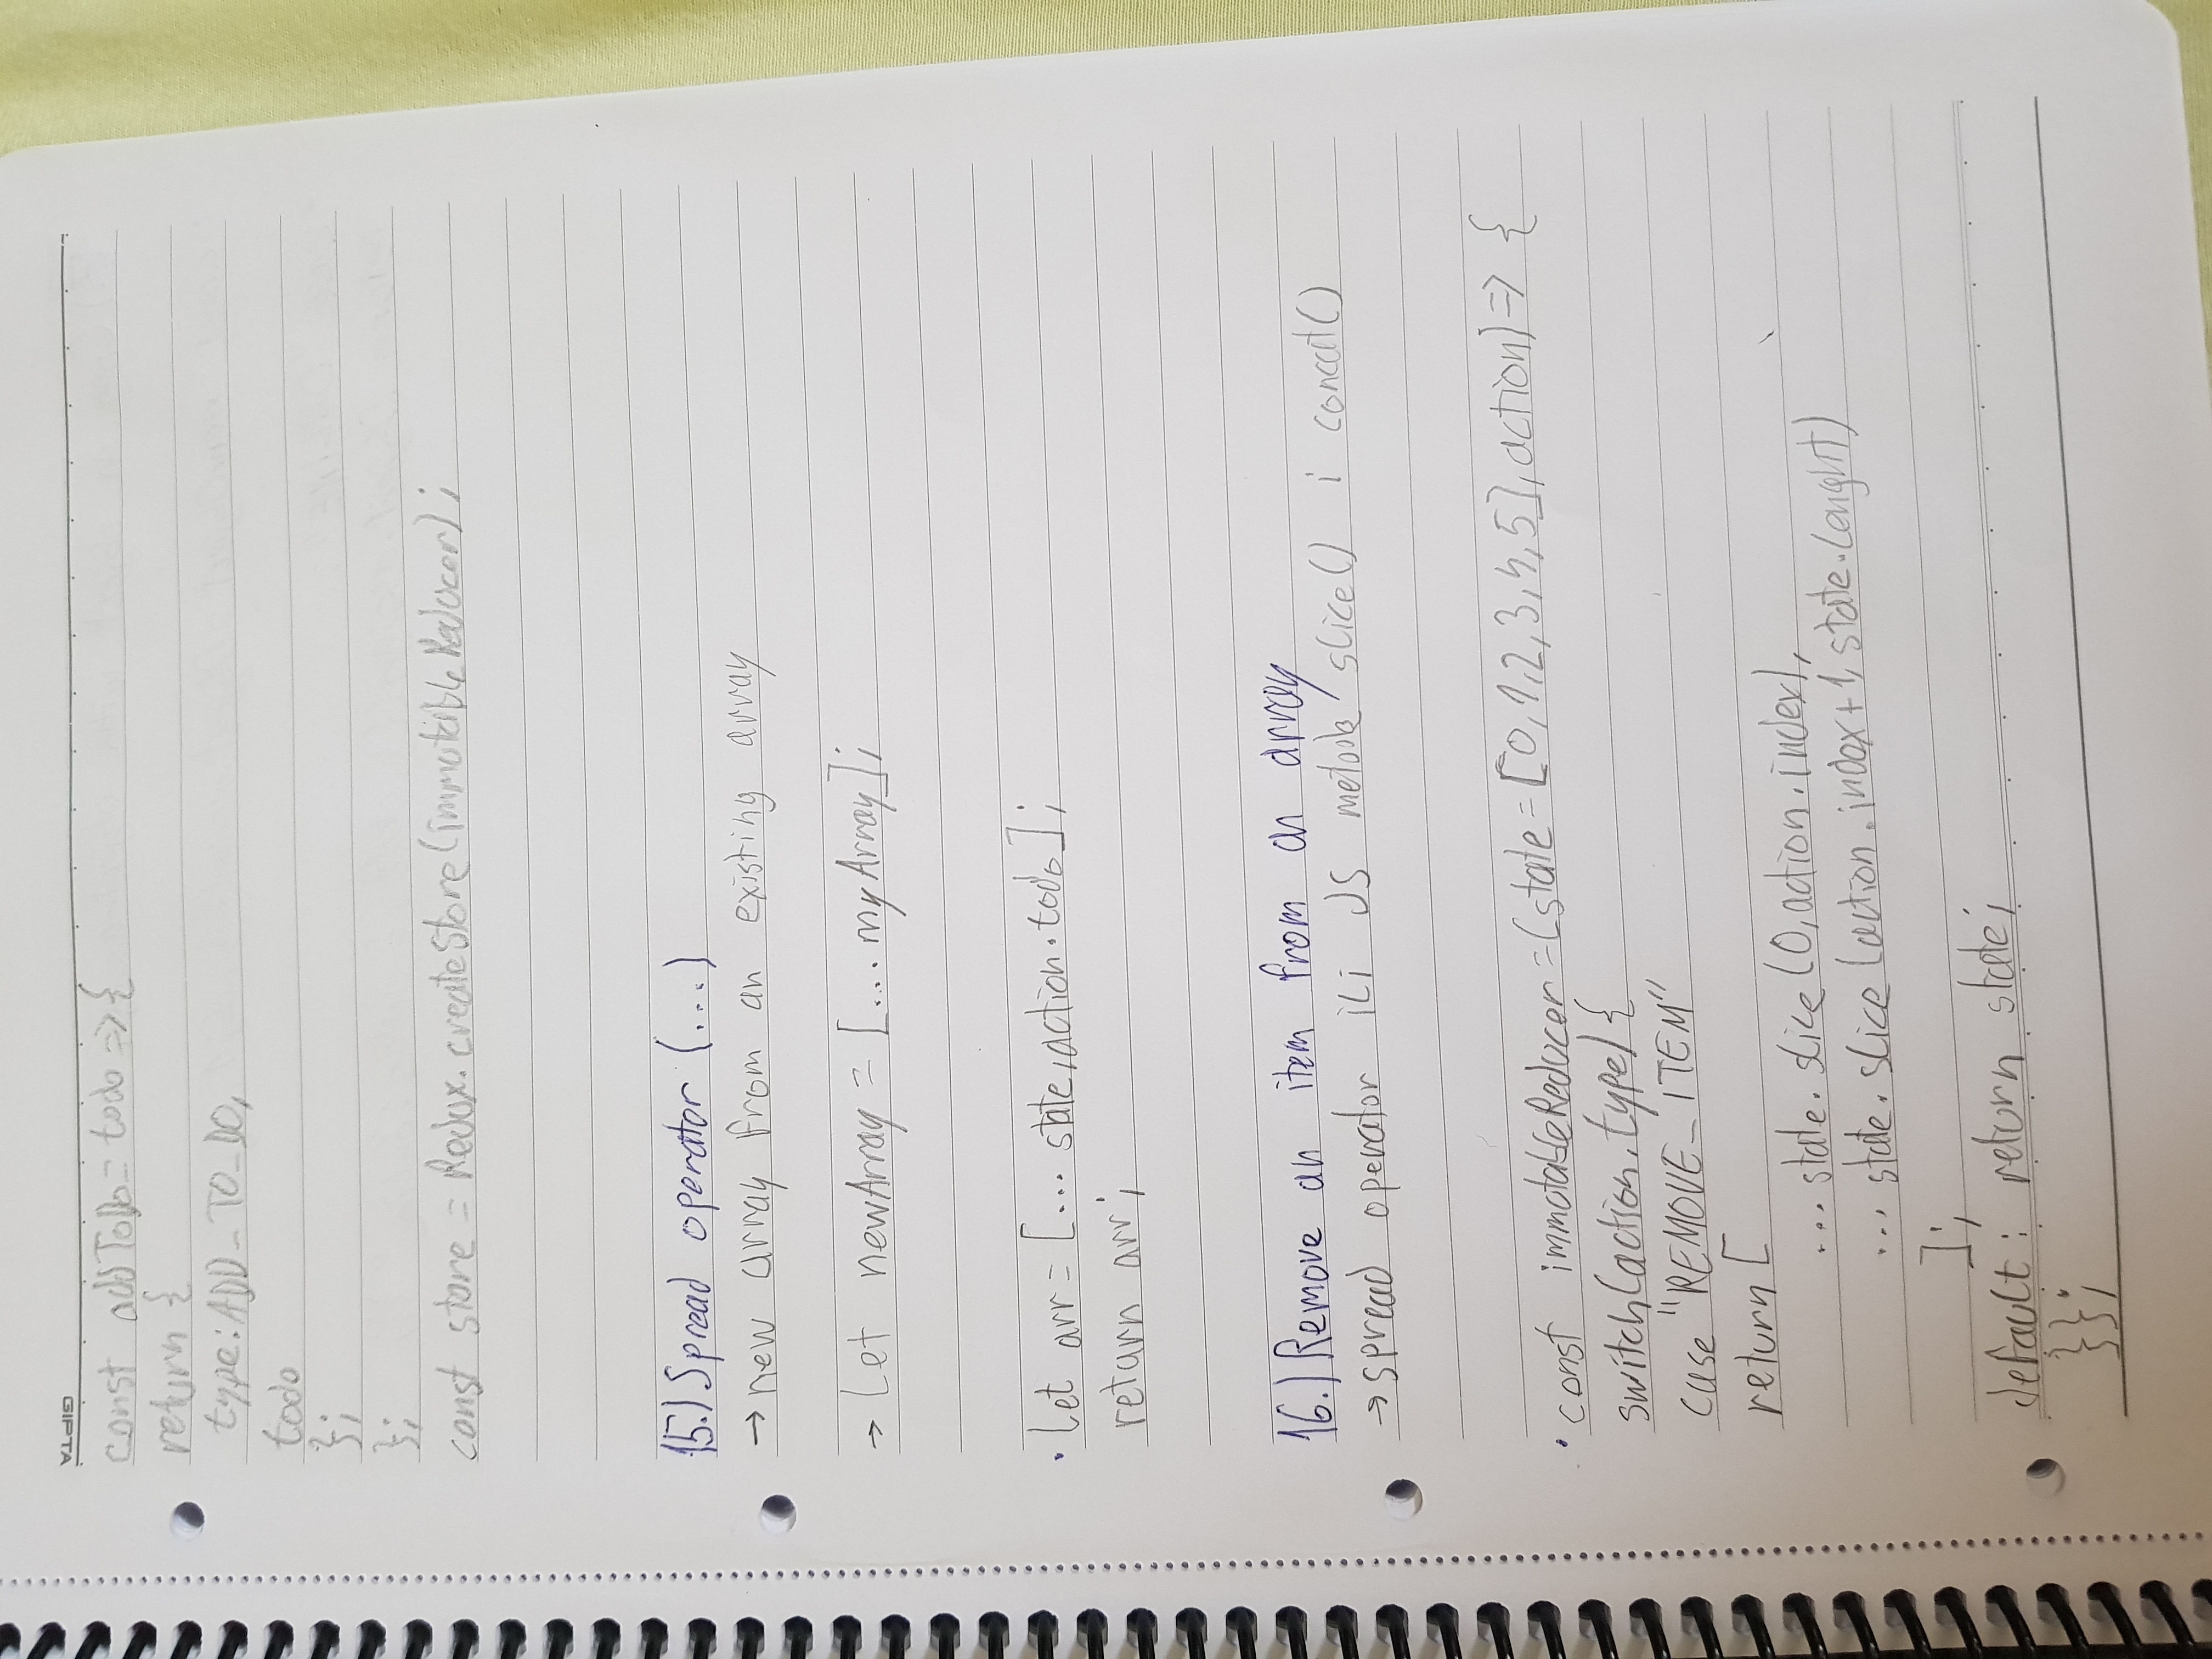 GIPTA
const addToDo = todo => {
return {
type: ADD_TO_DO,
todo
};
};
const store = Redux.createStore(immutableReducer);
15.) Spread operator (...)
→ new array from an existing array
→ let newArray = [... myArray];
· let arr = [... state, action.todo];
return arr;
16.) Remove an item from an array
→ spread operator ili JS metode slice() i concat()
· const immutableReducer = (state = [0,1,2,3,4,5], action) => {
switch(action.type) {
case "REMOVE_ITEM"
return [
... state.slice (0, action.index),
... state.slice (action.index+1, state.lenght)
];
default: return state;
}};